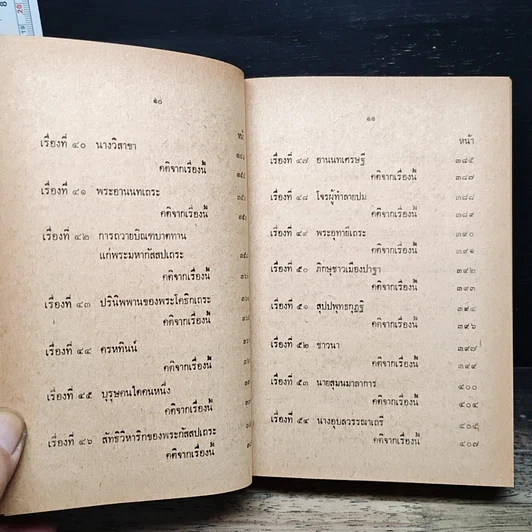 ๑๐
หน้า
เรื่องที่ ๔๐ นางวิสาขา
คติจากเรื่องนี้
เรื่องที่ ๔๑ พระอานนทเถระ
คติจากเรื่องนี้
เรื่องที่ ๔๒ การถวายบิณฑบาตทาน
แก่พระมหากัสสปเถระ
คติจากเรื่องนี้
เรื่องที่ ๔๓ ปรินิพพานของพระโคธิกเถระ
คติจากเรื่องนี้
เรื่องที่ ๔๔ ครหทินน์
คติจากเรื่องนี้
เรื่องที่ ๔๕ บุรุษคนใดคนหนึ่ง
คติจากเรื่องนี้
เรื่องที่ ๔๖ สัทธิวิหาริกของพระกัสสปเถระ
คติจากเรื่องนี้
๑๑
หน้า
เรื่องที่ ๔๗ อานนทเศรษฐี ๓๘๕
คติจากเรื่องนี้ ๓๘๗
เรื่องที่ ๔๘ โจรผู้ทำลายปม ๓๘๘
คติจากเรื่องนี้ ๓๘๙
เรื่องที่ ๔๙ พระอุทายีเถระ ๓๙๐
คติจากเรื่องนี้ ๓๙๑
เรื่องที่ ๕๐ ภิกษุชาวเมืองปาฐา ๓๙๒
คติจากเรื่องนี้ ๓๙๓
เรื่องที่ ๕๑ สุปปพุทธกุฏฐิ
คติจากเรื่องนี้ ๓๙๖
เรื่องที่ ๕๒ ชาวนา ๓๙๗
คติจากเรื่องนี้ ๓๙๙
เรื่องที่ ๕๓ นายสุมนมาลาการ ๔๐๐
คติจากเรื่องนี้ ๔๐๔
เรื่องที่ ๕๔ นางอุบลวรรณาเถรี ๔๐๕
คติจากเรื่องนี้ ๔๐๗